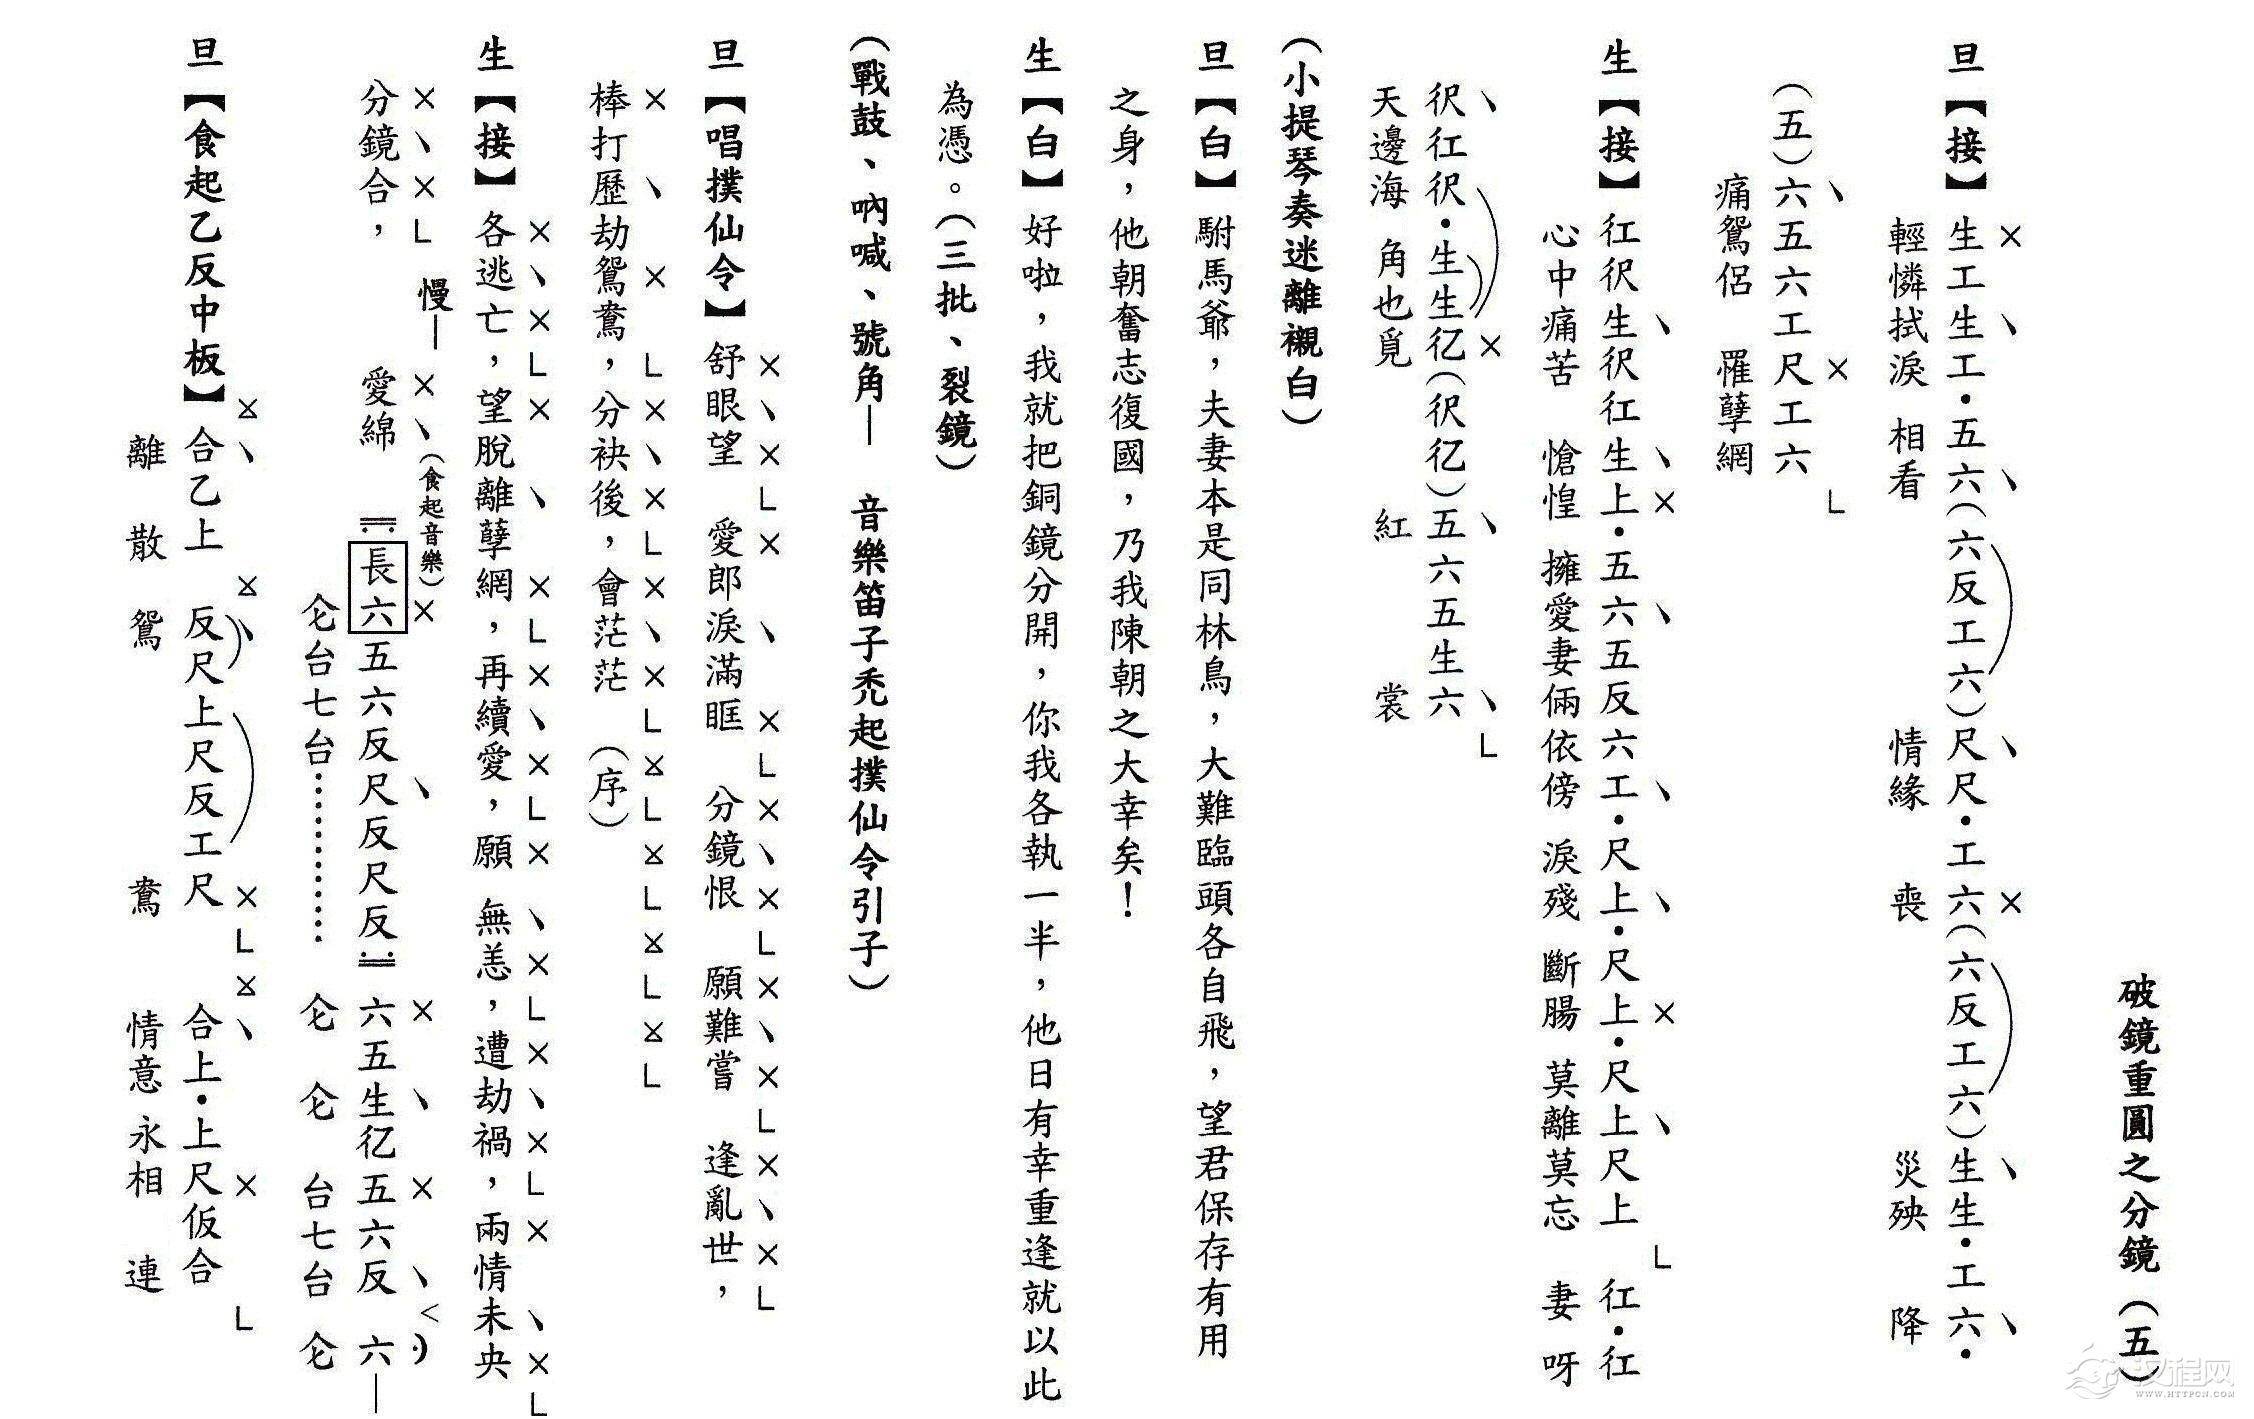 破鏡重圓之分鏡（五）
旦【接】生工生工·五六（六反工六）尺尺·工六（六反工六）生生·工六·
輕憐拭淚 相看 情緣 喪 災殃 降
（五）六五六工尺工六
痛鴛侶 罹孽網
生【接】仜伬生伬仜生上·五六五反六工·尺上·尺上·尺上尺上 仜·仜
心中痛苦 愴惶 擁愛妻倆依傍 淚殘 斷腸 莫離莫忘 妻呀
伬仜伬·生生亿（伬亿）五六五生六
天邊海 角也覓 紅 裳
（小提琴奏迷離襯白）
旦【白】駙馬爺，夫妻本是同林鳥，大難臨頭各自飛，望君保存有用
之身，他朝奮志復國，乃我陳朝之大幸矣！
生【白】好啦，我就把銅鏡分開，你我各執一半，他日有幸重逢就以此
為憑。（三批、裂鏡）
（戰鼓、吶喊、號角— 音樂笛子禿起撲仙令引子）
旦【唱撲仙令】舒眼望 愛郎淚滿眶 分鏡恨 願難嘗 逢亂世，
棒打歷劫鴛鴦，分袂後，會茫茫 （序）
生【接】各逃亡，望脫離孽網，再續愛，願 無恙，遭劫禍，兩情未央
分鏡合， 慢— 愛綿 （食起音樂） 長六五六反尺反尺反 六五生亿五六反 六—
仑台七台………… 仑 仑 台七台 仑
旦【食起乙反中板】合乙上 反尺上尺反工尺 合上·上尺仮合
離 散 鴛 鴦 情意永相 連
汉程网
WWW.HTTPCN.COM